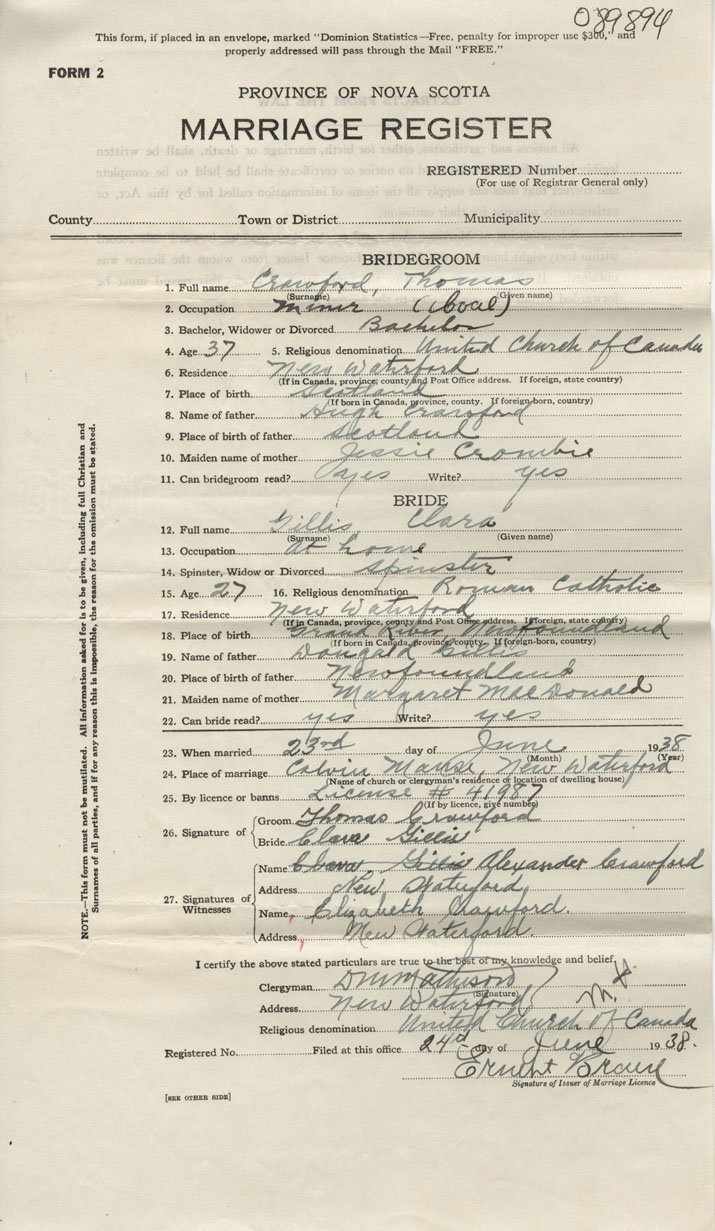 039894
This form, if placed in an envelope, marked "Dominion Statistics—Free, penalty for improper use $300," and
properly addressed will pass through the Mail "FREE."
FORM 2
PROVINCE OF NOVA SCOTIA
MARRIAGE REGISTER
REGISTERED Number
(For use of Registrar General only)
County Town or District Municipality
BRIDEGROOM
1. Full name Crawford, Thomas
(Surname) (Given name)
2. Occupation Miner (Coal)
3. Bachelor, Widower or Divorced Bachelor
4. Age 37 5. Religious denomination United Church of Canada
6. Residence New Waterford
(If in Canada, province, county and Post Office address. If foreign, state country)
7. Place of birth Scotland
(If born in Canada, province, county. If foreign-born, country)
8. Name of father Hugh Crawford
9. Place of birth of father Scotland
10. Maiden name of mother Jessie Crombie
11. Can bridegroom read? yes Write? yes
BRIDE
12. Full name Gillis Clara
(Surname) (Given name)
13. Occupation at home
14. Spinster, Widow or Divorced Spinster
15. Age 27 16. Religious denomination Roman Catholic
17. Residence New Waterford
(If in Canada, province, county and Post Office address. If foreign, state country)
18. Place of birth Grand River, Newfoundland
(If born in Canada, province, county. If foreign-born, country)
19. Name of father Dougald Gillis
20. Place of birth of father Newfoundland
21. Maiden name of mother Margaret MacDonald
22. Can bride read? yes Write? yes
23. When married 23rd day of June 1938
(Month) (Year)
24. Place of marriage Calvin Manse, New Waterford
(Name of church or clergyman's residence or location of dwelling house)
25. By licence or banns License # 41987
(If by licence, give number)
26. Signature of Groom Thomas Crawford
Bride Clara Gillis
27. Signatures of Witnesses Name Clara Gillis Alexander Crawford
Address New Waterford
Name Elizabeth Crawford.
Address New Waterford.
I certify the above stated particulars are true to the best of my knowledge and belief,
Clergyman D M Mathieson
(Signature)
Address New Waterford
Religious denomination United Church of Canada
Registered No. Filed at this office 24th day of June 1938.
Ernest
Signature of Issuer of Marriage Licence
[SEE OTHER SIDE]
NOTE.—This form must not be mutilated. All information asked for is to be given, including full Christian and
Surnames of all parties, and if for any reason this is impossible, the reason for the omission must be stated.